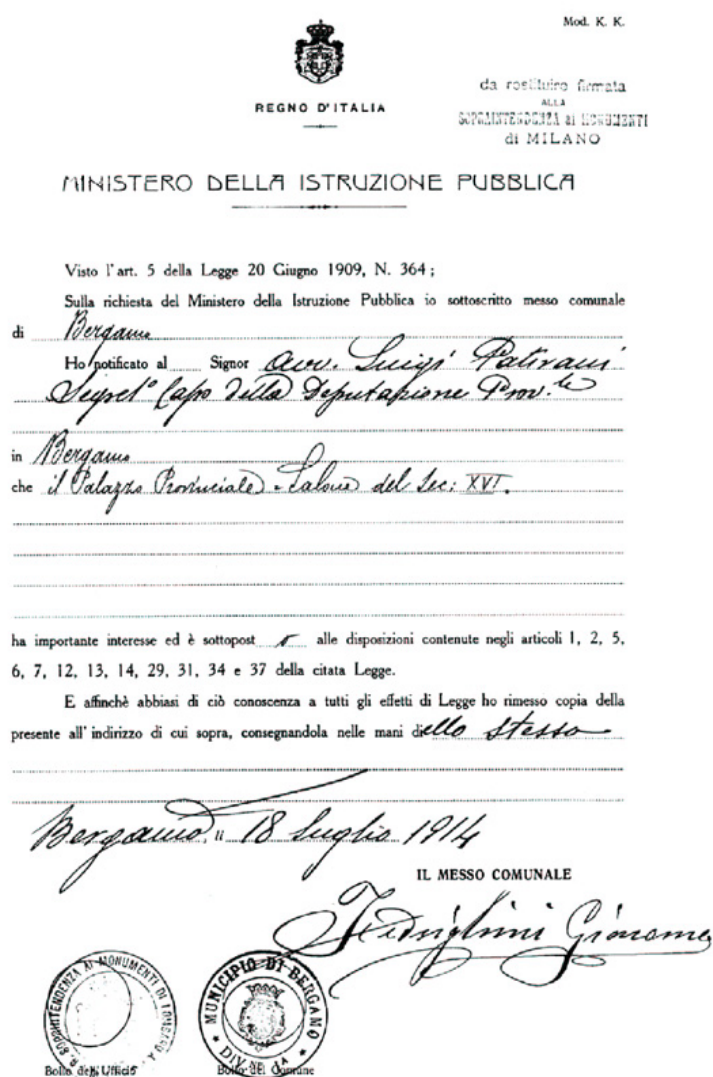 Mod. K. K.
da restituire firmata
ALLA
SOPRAINTENDENZA ai MONUMENTI
di MILANO
REGNO D'ITALIA
MINISTERO DELLA ISTRUZIONE PUBBLICA
Visto l'art. 5 della Legge 20 Giugno 1909, N. 364;
Sulla richiesta del Ministero della Istruzione Pubblica io sottoscritto messo comunale
di Bergamo
Ho notificato al Signor avv. Luigi Patirani
Segret° Capo della Deputazione Prov.le
in Bergamo
che il Palazzo Provinciale - Salone del Sec: XVI.
ha importante interesse ed è sottopost o alle disposizioni contenute negli articoli 1, 2, 5,
6, 7, 12, 13, 14, 29, 31, 34 e 37 della citata Legge.
E affinchè abbiasi di ciò conoscenza a tutti gli effetti di Legge ho rimesso copia della
presente all'indirizzo di cui sopra, consegnandola nelle mani dello stesso
Bergamo, li 18 luglio 1914
IL MESSO COMUNALE
Giacomo
R. SOPRINTENDENZA AI MONUMENTI DI LOMBARDIA
MUNICIPIO DI BERGAMO
DIV.NE 1A
Bollo dell'Ufficio
Bollo del Comune